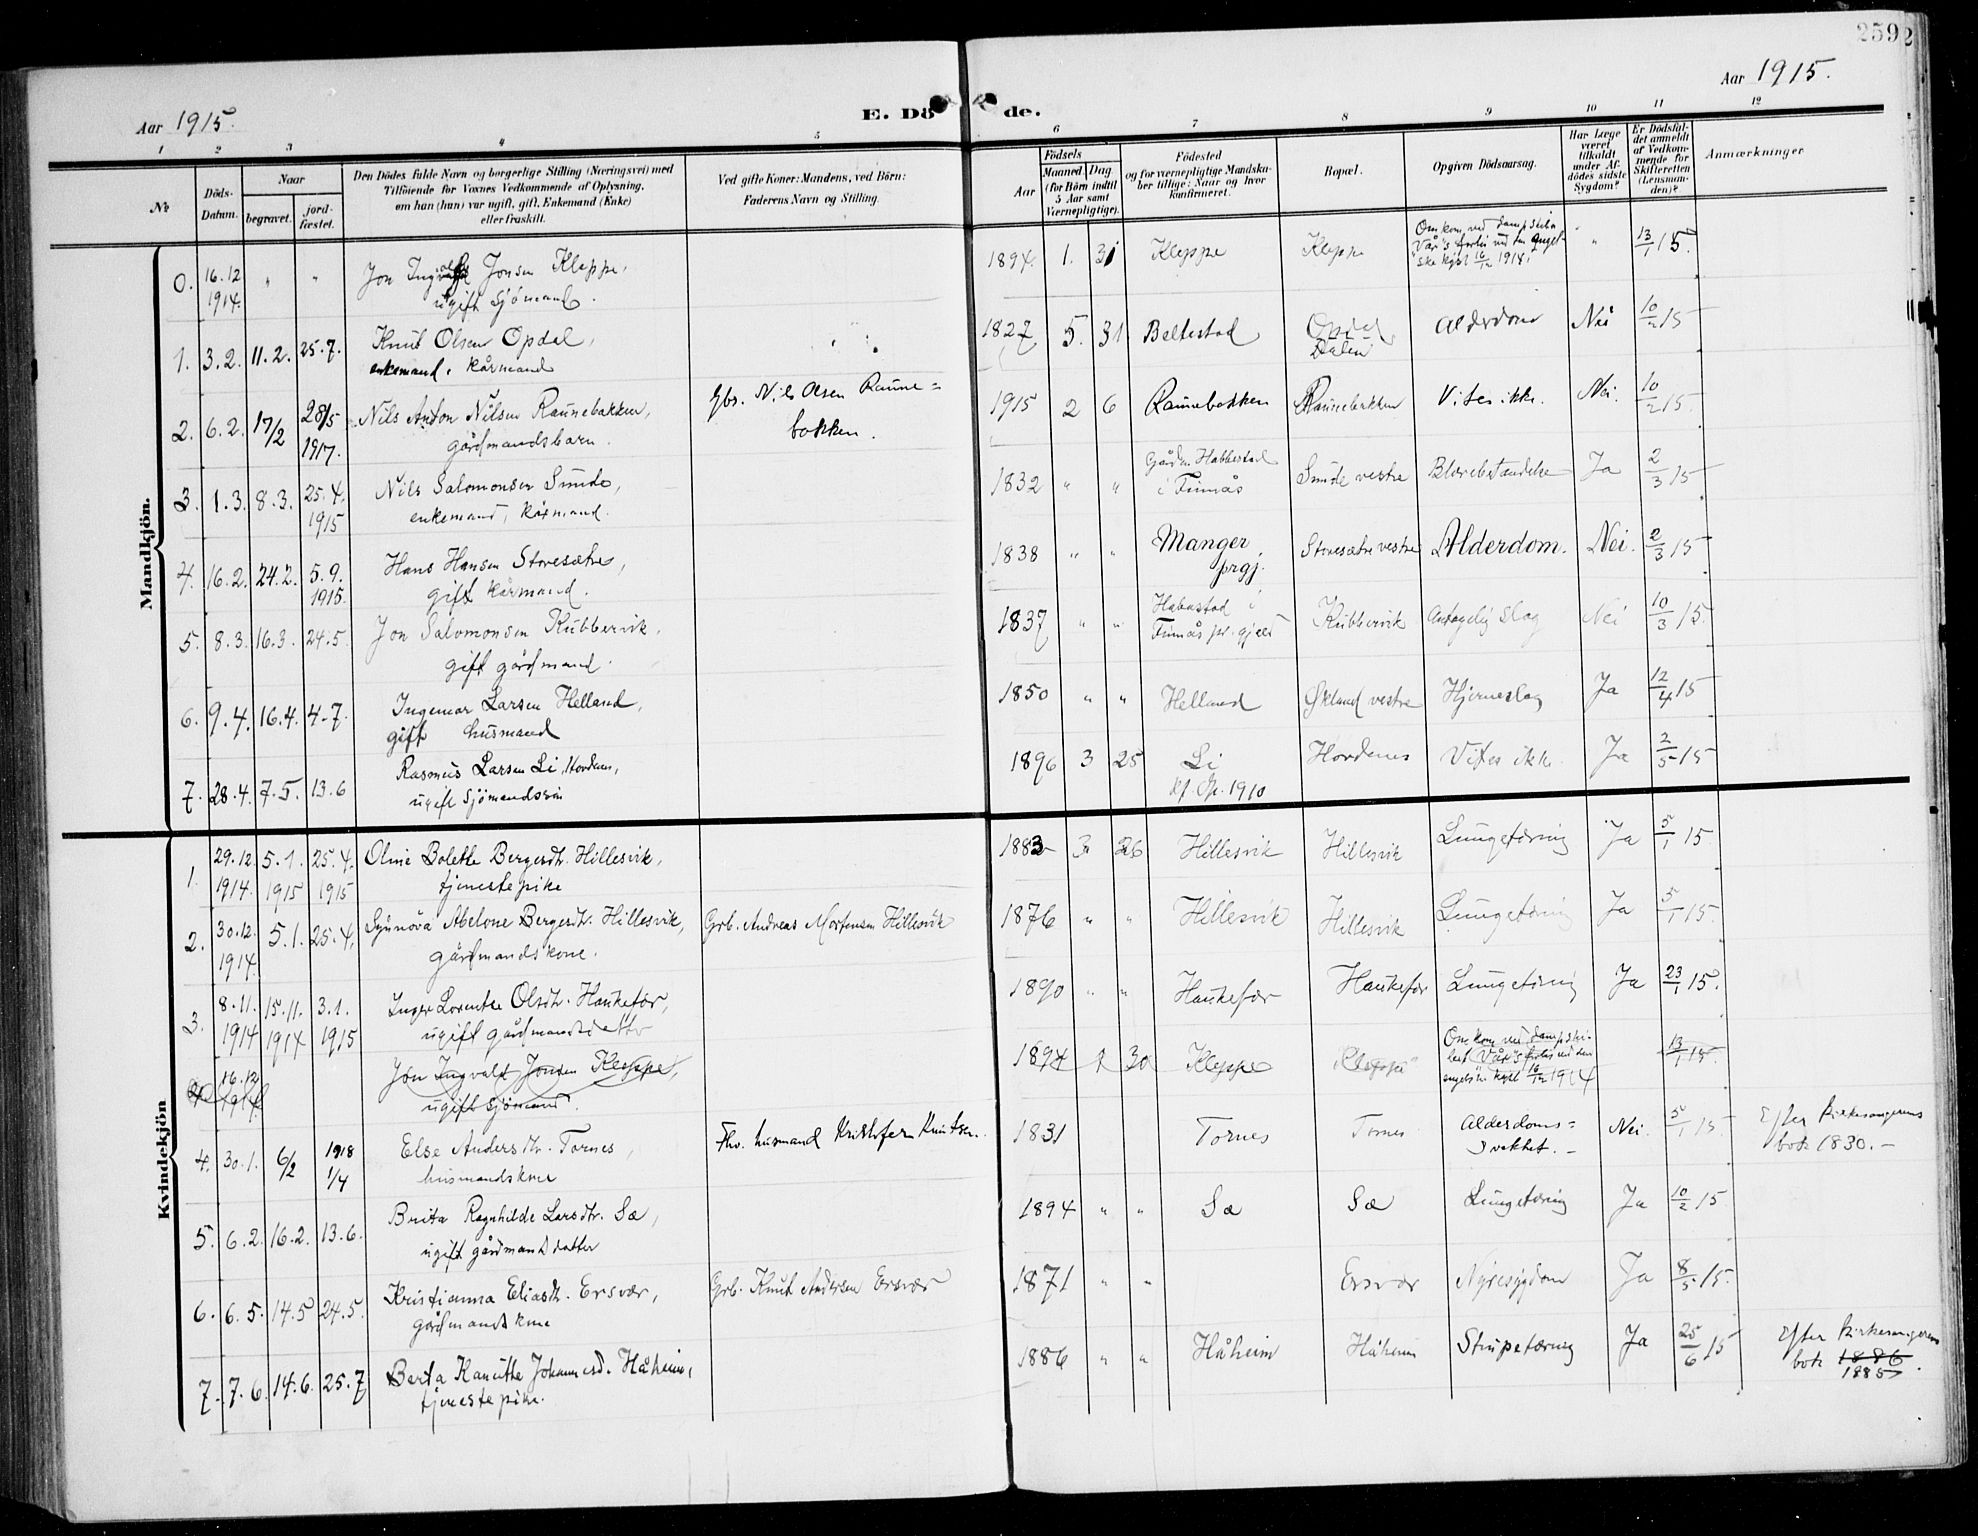 2592
Aar 1915.
E. Döde.
Aar 1915.
1 2 3 4 5 6 7 8 9 10 11 12
No
Döds-
Datum.
Naar
begravet.
jord-
fæstet.
Den Dödes fulde Navn og borgerlige Stilling (Næringsvei) med
Tilföiende for Voxnes Vedkommende af Oplysning,
om han (hun) var ugift, gift, Enkemand (Enke)
eller fraskilt.
Ved gifte Koner: Mandens, ved Börn:
Faderens Navn og Stilling.
Födsels
Aar
Maaned
Dag
(for Börn indtil
5 Aar samt
Værnepligtige).
Födested
og for værnepligtige Mandska-
ber tillige: Naar og hvor
konfirmeret.
Bopæl.
Opgiven Dödsaarsag.
Har Læge
været
tilkaldt
under Af-
dödes sidste
Sygdom?
Er Dödsfal-
det anmeldt
af Vedkom-
mende for
Skifteretten
(Lensman-
den)?
Anmærkninger
Mandkjön.
0. 16.12 1914. " " Jon Ingvald Jonsen Kleppe,
ugift Sjömand.
1894. 1. 31 Kleppe Kleppe Omkom ved dampskib
"Vår"s forlis ved den engel-
ske kyst 16/12 1914. " 13/1 15.
1. 3.2. 11.2. 25.7. Knut Olsen Opdal,
enkemand, kårmand
1827 5. 31 Beltestad Opdal
Dalen Alderdom Nei 10/2 15
2. 6.2. 17/2 28/5 1917. Nils Anton Nilsen Raunebakken,
gårdmandsbarn.
Gbr. Nils Olsen Raune=
bakken.
1915 2 6 Raunebakken Raunebakken Vites ikke. Nei. 10/2 15.
3. 1.3. 8.3. 25.4. 1915 Nils Salomonsen Sunde,
enkemand, kårmand.
1832 " " Gården Habbestad
i Finnås Sunde vestre Blærebetændelse Ja 2/3 15
4. 16.2. 24.2. 5.9. 1915. Hans Hansen Storesætre,
gift kårmand.
1838 " " Manger
prgj. Storesætre vestre Alderdom. Nei. 2/3 15
5. 8.3. 16.3. 24.5. Jon Salomonsen Kubbervik,
gift gårdmand.
1837 " " Habestad i
Finnås pr.gjeld Kubbervik Antagelig slag Nei 10/3 15.
6. 9.4. 16.4. 4.7. Ingemar Larsen Helland,
gift husmand
1850 " " Helland Økland vestre Hjerneslag Ja 12/4 15
7. 28.4. 7.5. 13.6 Rasmus Larsen Li, Hordenes,
ugift Sjömandssön
1896 3 25 Li
kf. Op. 1910 Hordenes Vites ikke. Ja 2/5 15
Kvindekjön
1. 29.12. 1914. 5.1. 1915 25.4. 1915 Oline Bolette Bergesdtr. Hillesvik,
tjenestepike
1883 3 26 Hillesvik Hillesvik Lungetæring Ja 5/1 15.
2. 30.12. 1914. 5.1. 25.4. Synnöva Abelone Bergesdtr. Hillesvik,
gårdmandskone.
Grb. Andreas Mortensen Hillesvik
1876 " " Hillesvik Hillesvik Lungetæring Ja 5/1 15.
3. 8.11. 1914 15.11. 1914 3.1. 1915 Inger Lorentse Olsdtr. Haukefær,
ugift gårdmandsdatter
1890 " " Haukefær Haukefær Lungetæring Ja 23/1 15.
4 16.12 1914 Jon Ingvald Jonsen Kleppe,
ugift sjömand.
1894 1 30 Kleppe Kleppe Omkom ved dampski-
bet "Vår"s forlis ved den
engelske kyst 16/12 1914 13/1 15.
4. 30.1. 6/2 1918 1/4 Else Andersdtr. Tornes,
husmandskone
Fhv. husmand Kristofer Knutsen.
1831 Tornes Tornes Alderdoms=
svakhet. Nei. 5/1 15. Efter Kirkesangerens
bok 1830.
5. 6.2. 16.2. 13.6. Brita Ragnhilde Larsdtr. Sæ,
ugift gårdmandsdatter
1894 " " Sæ Sæ Lungetæring Ja 10/2 15.
6. 6.5. 14.5 24.5. Kristianna Eliasdtr. Ersvær,
gårdmandskone
Grb. Knut Andersen Ersvær
1871 " " Ersvær Nyresygdom Ja 8/5 15.
7. 7.6. 14.6. 25.7 Berta Kanutte Johannesd. Håheim,
tjenestepike.
1886 " " Håheim Håheim Strupetæring Ja 25/6 15 Efter Kirkesangerens
bok 1886
1885.